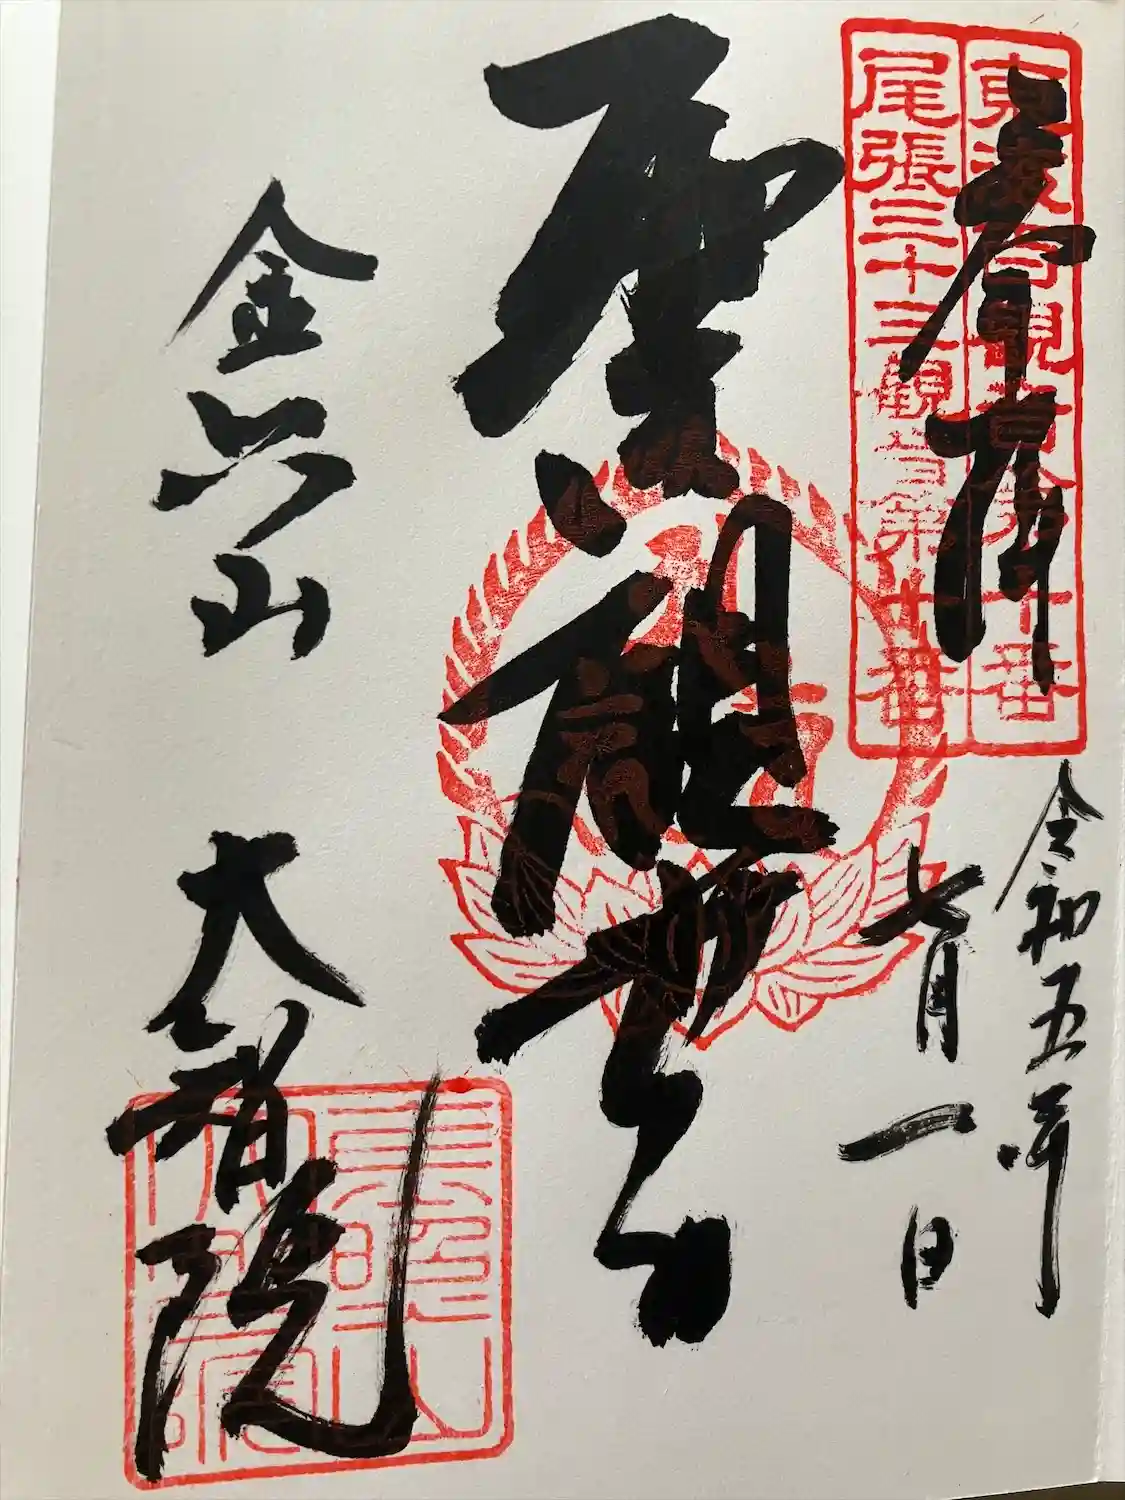 奉拝
東海百観音第二十番
尾張三十三観音第二十番
令和五年
七月一日
聖観世音
金照山
大智院